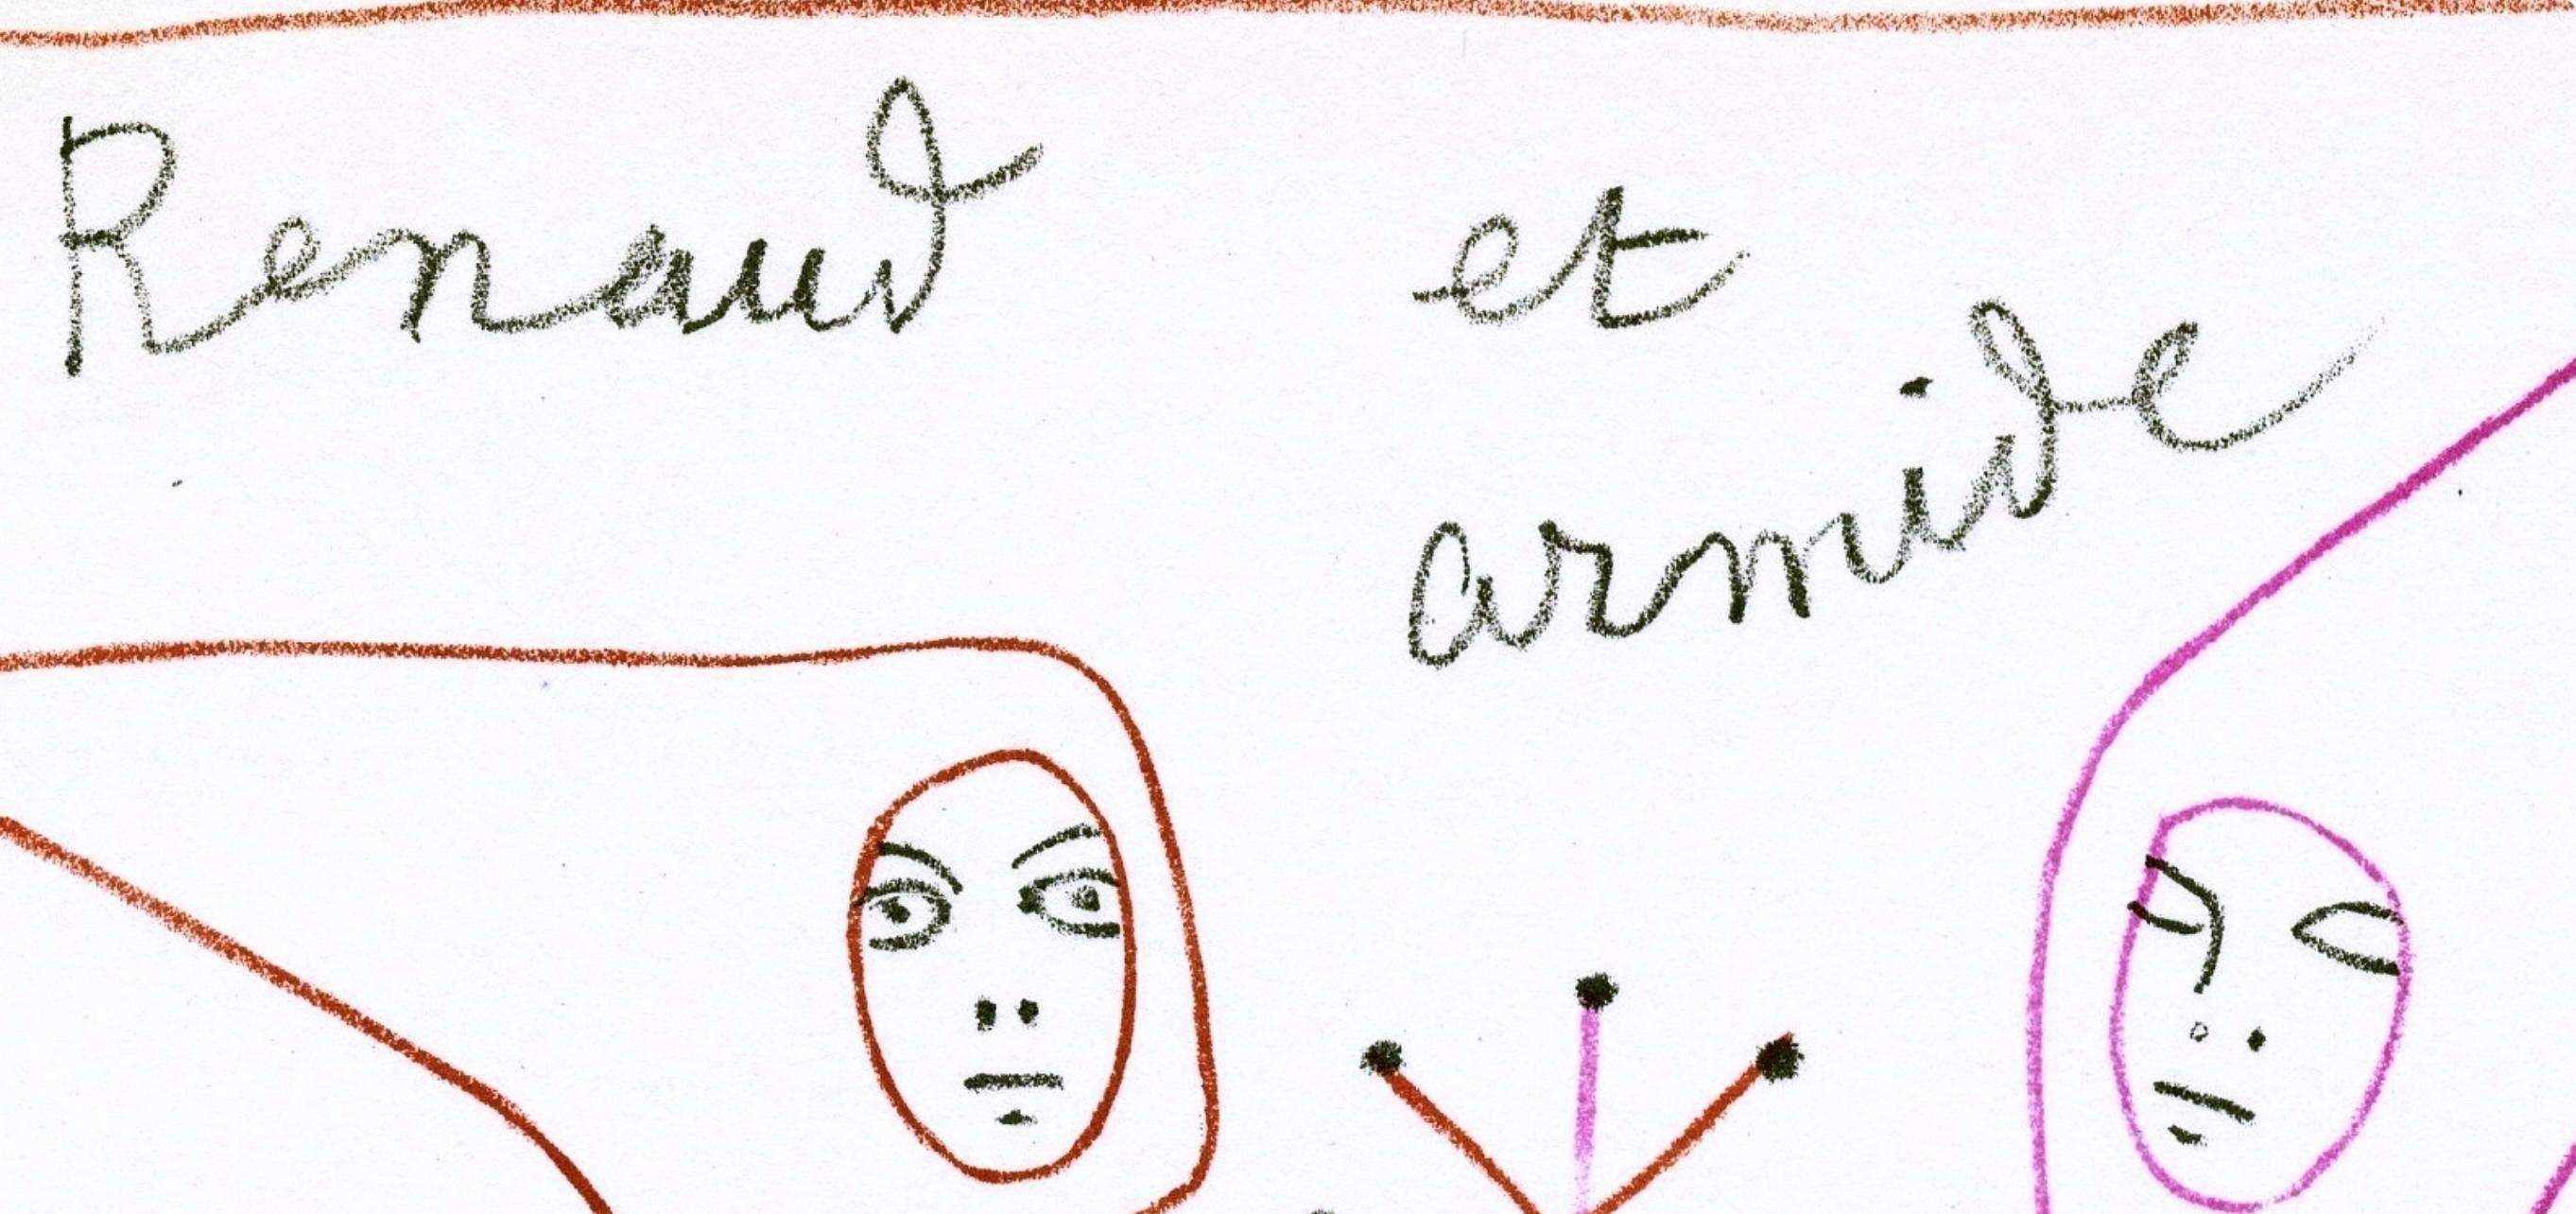 Renaud et
armide